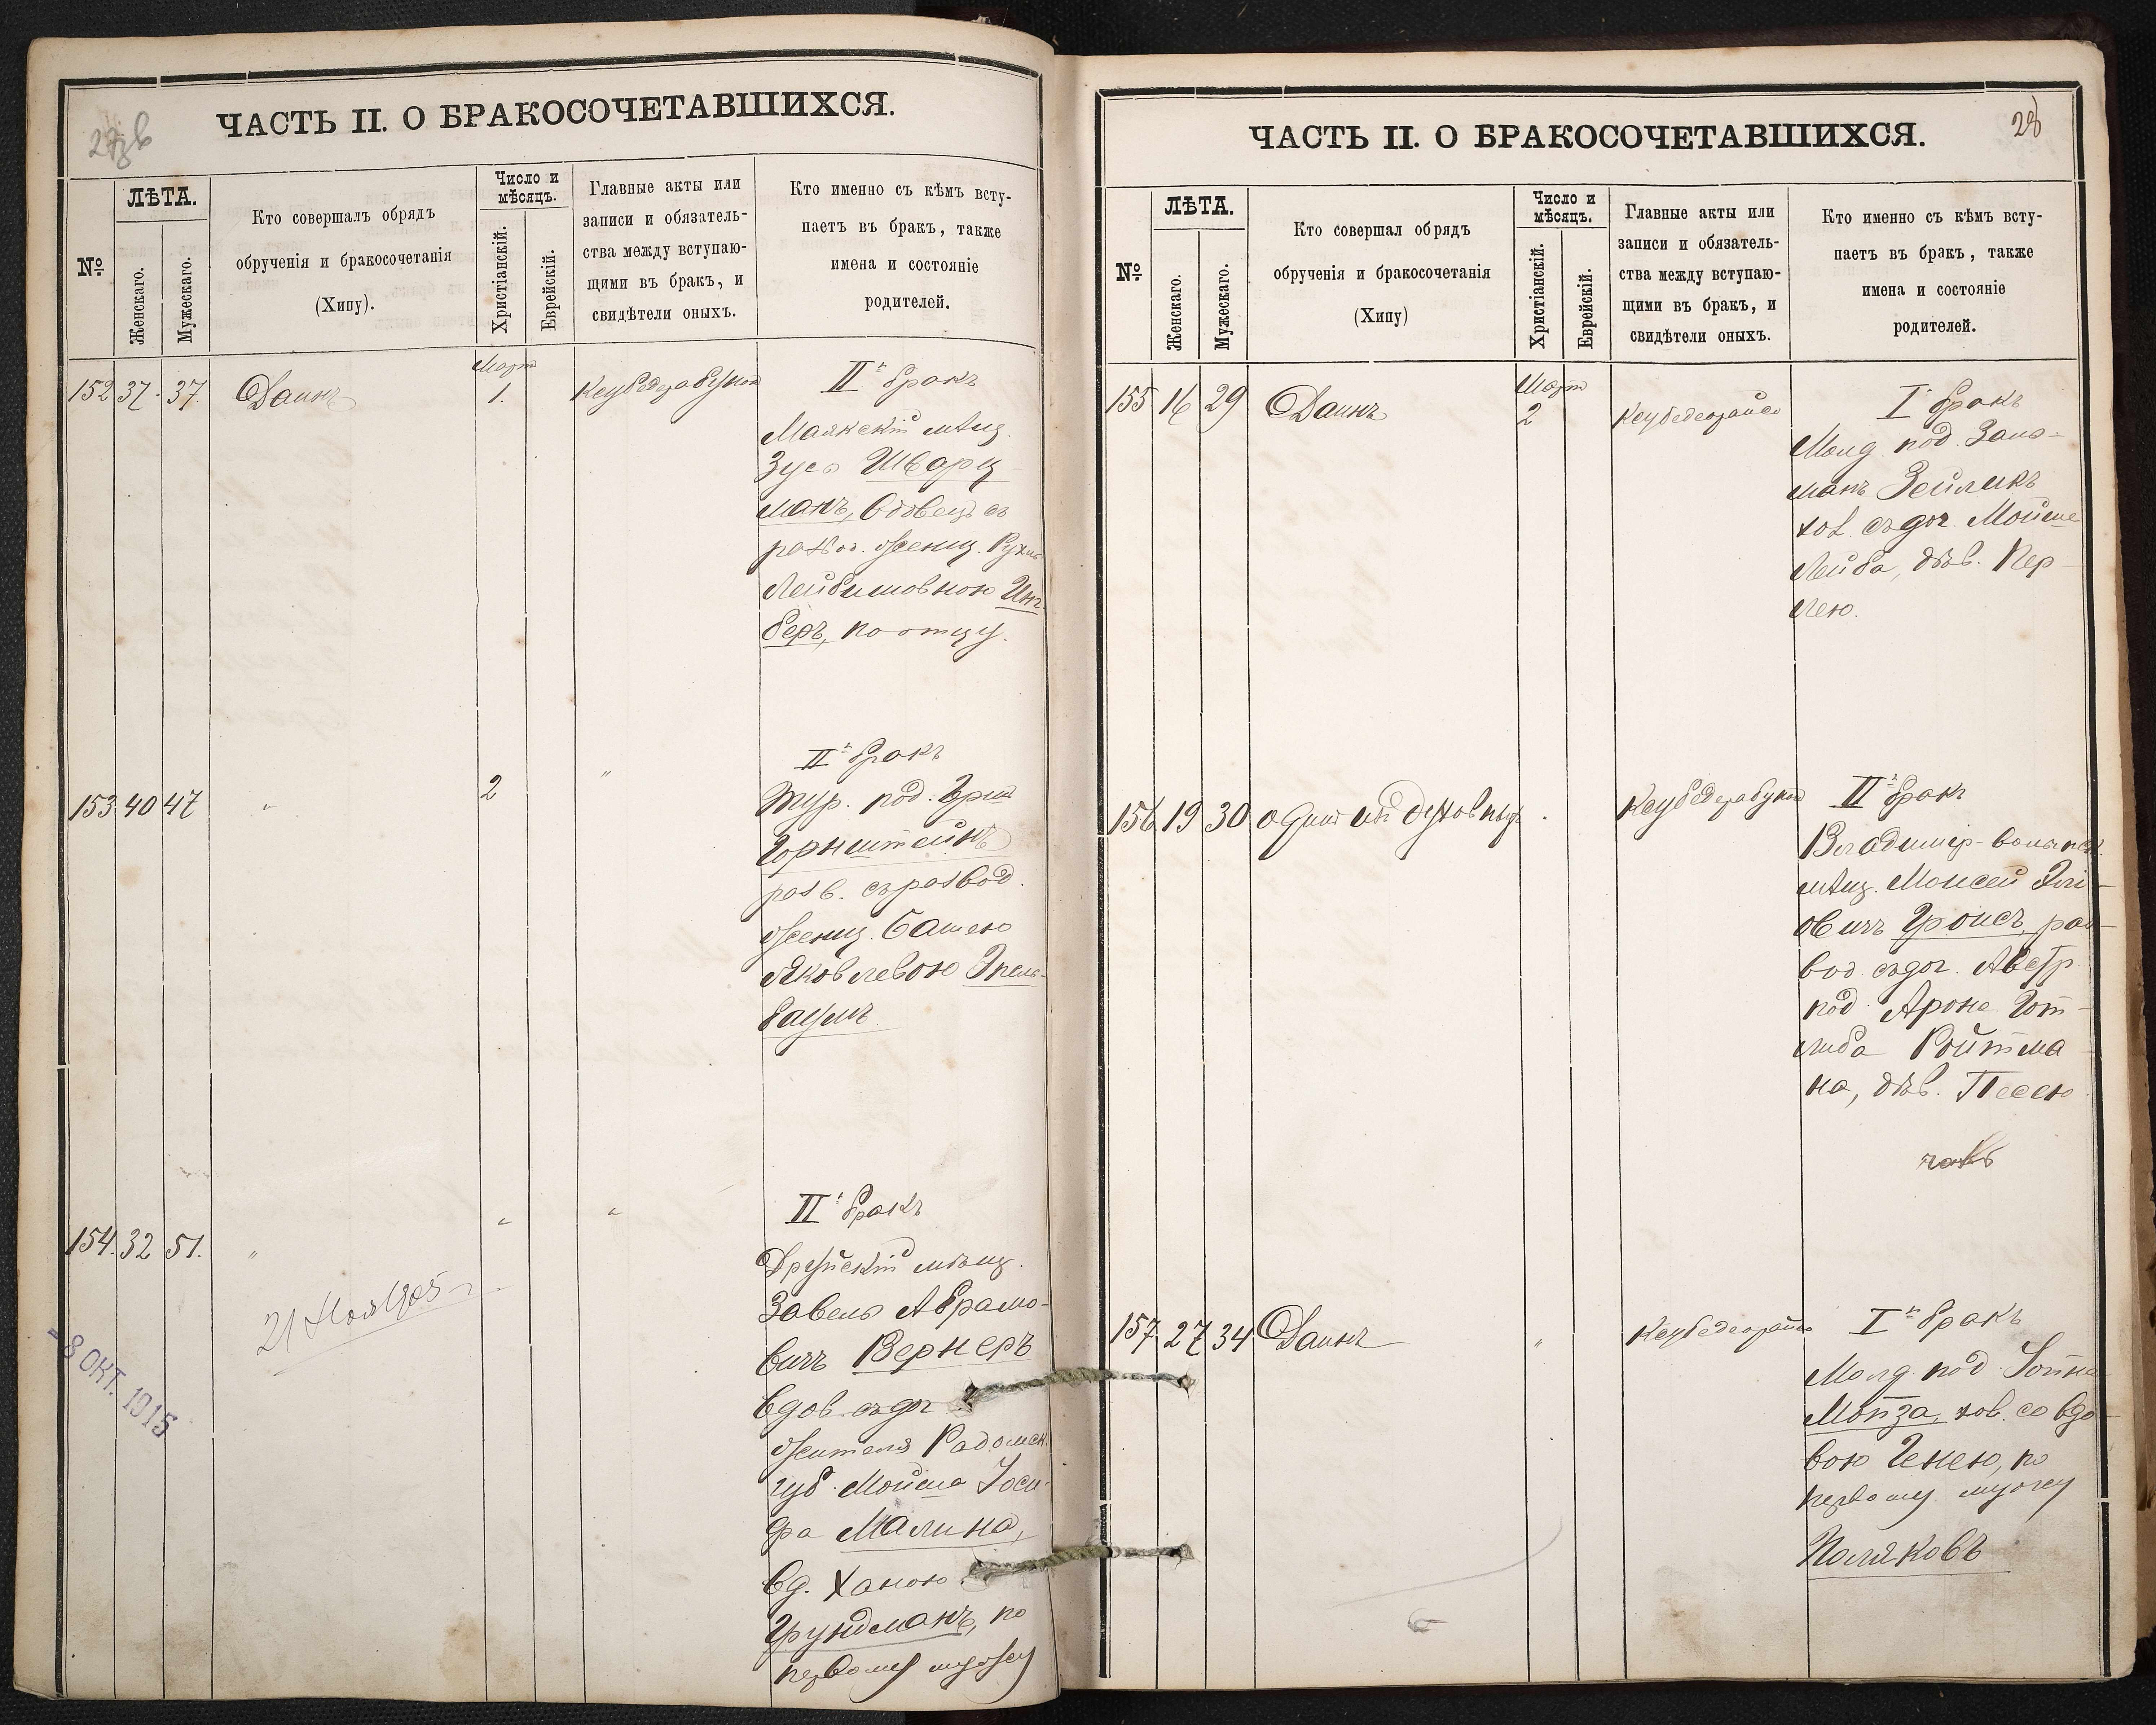 27об
ЧАСТЬ II. О БРАКОСОЧЕТАВШИХСЯ.
№
ЛѢТА.
Женскаго.
Мужескаго.
Кто совершалъ обрядъ
обрученія и бракосочетанія
(Хипу).
Число и
мѣсяцъ.
Христіанскій.
Еврейскій.
Главные акты или
записи и обязатель-
ства между вступаю-
щими въ бракъ, и
свидѣтели оныхъ.
Кто именно съ кѣмъ всту-
паетъ въ бракъ, также
имена и состояніе
родителей.
Март
152 37. 37. Даинъ 1.
II бракъ
Маякскій мѣщ.
Зусь Шварц
манъ, вдовецъ съ
развод. женщ. Рухлю
Лейбишовною Инг
беръ, по отцу.
153 40 47 " 2 "
II бракъ
Тур. под. Герш
Горнштейнъ
разв. съ развод.
женщ. Башею
Яковлевою Эпель-
баумъ
154. 32 51. " " "
II бракъ
Друйскій мѣщ.
Завель Абрамо-
вичъ Вернеръ
вдов. съ доч.
жителя Радомск.
губ. Мойша Іоси-
фа Малина,
вд. Ханою
Грундманъ, по
первому мужу
21 Ноя 1905 г.
- 8 ОКТ. 1915
28
ЧАСТЬ II. О БРАКОСОЧЕТАВШИХСЯ.
№
ЛѢТА.
Женскаго.
Мужескаго.
Кто совершал обрядъ
обрученія и бракосочетанія
(Хипу)
Число и
мѣсяцъ.
Христіанскій.
Еврейскій.
Главные акты или
записи и обязатель-
ства между вступаю-
щими въ бракъ, и
свидѣтели оныхъ.
Кто именно съ кѣмъ всту-
паетъ въ бракъ, также
имена и состояніе
родителей.
Март
155 16 29 Даинъ 2
I бракъ
Молд. под. Зало-
манъ Зейликъ
хол. съ доч. Мойше
Лейба, дѣв. Пер-
лею.
156 19 30 духовный
II бракъ
Владимір-волынск.
мѣщ. Моисей Эли-
овичъ Гроисъ, раз-
вод. съ доч. Австр.
под. Арона Гот-
либа Ройтма-
на, дѣв. Песею
157 27 34 Даинъ "
I бракъ
Молд. под.
Мойза, хол. со вдо-
вою Генею, по
первому мужу
Поляковъ